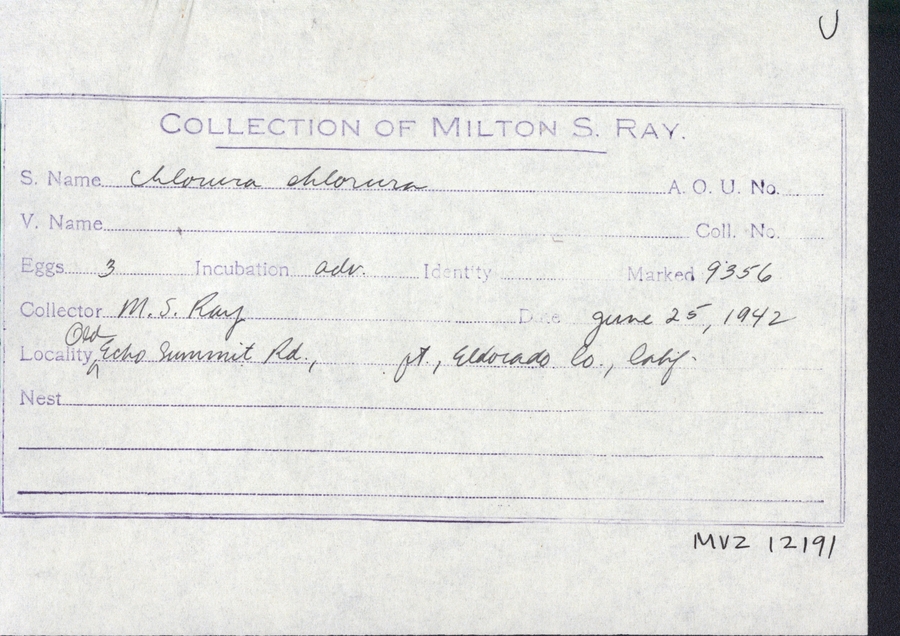 U
COLLECTION OF MILTON S. RAY.
S. Name Chlorura chlorura A. O. U. No.
V. Name Coll. No.
Eggs 3 Incubation adv. Identity Marked 9356
Collector M. S. Ray Date June 25, 1942
Old
Locality Echo Summit Rd., ft., Eldorado Co., Calif.
Nest
MVZ 12191